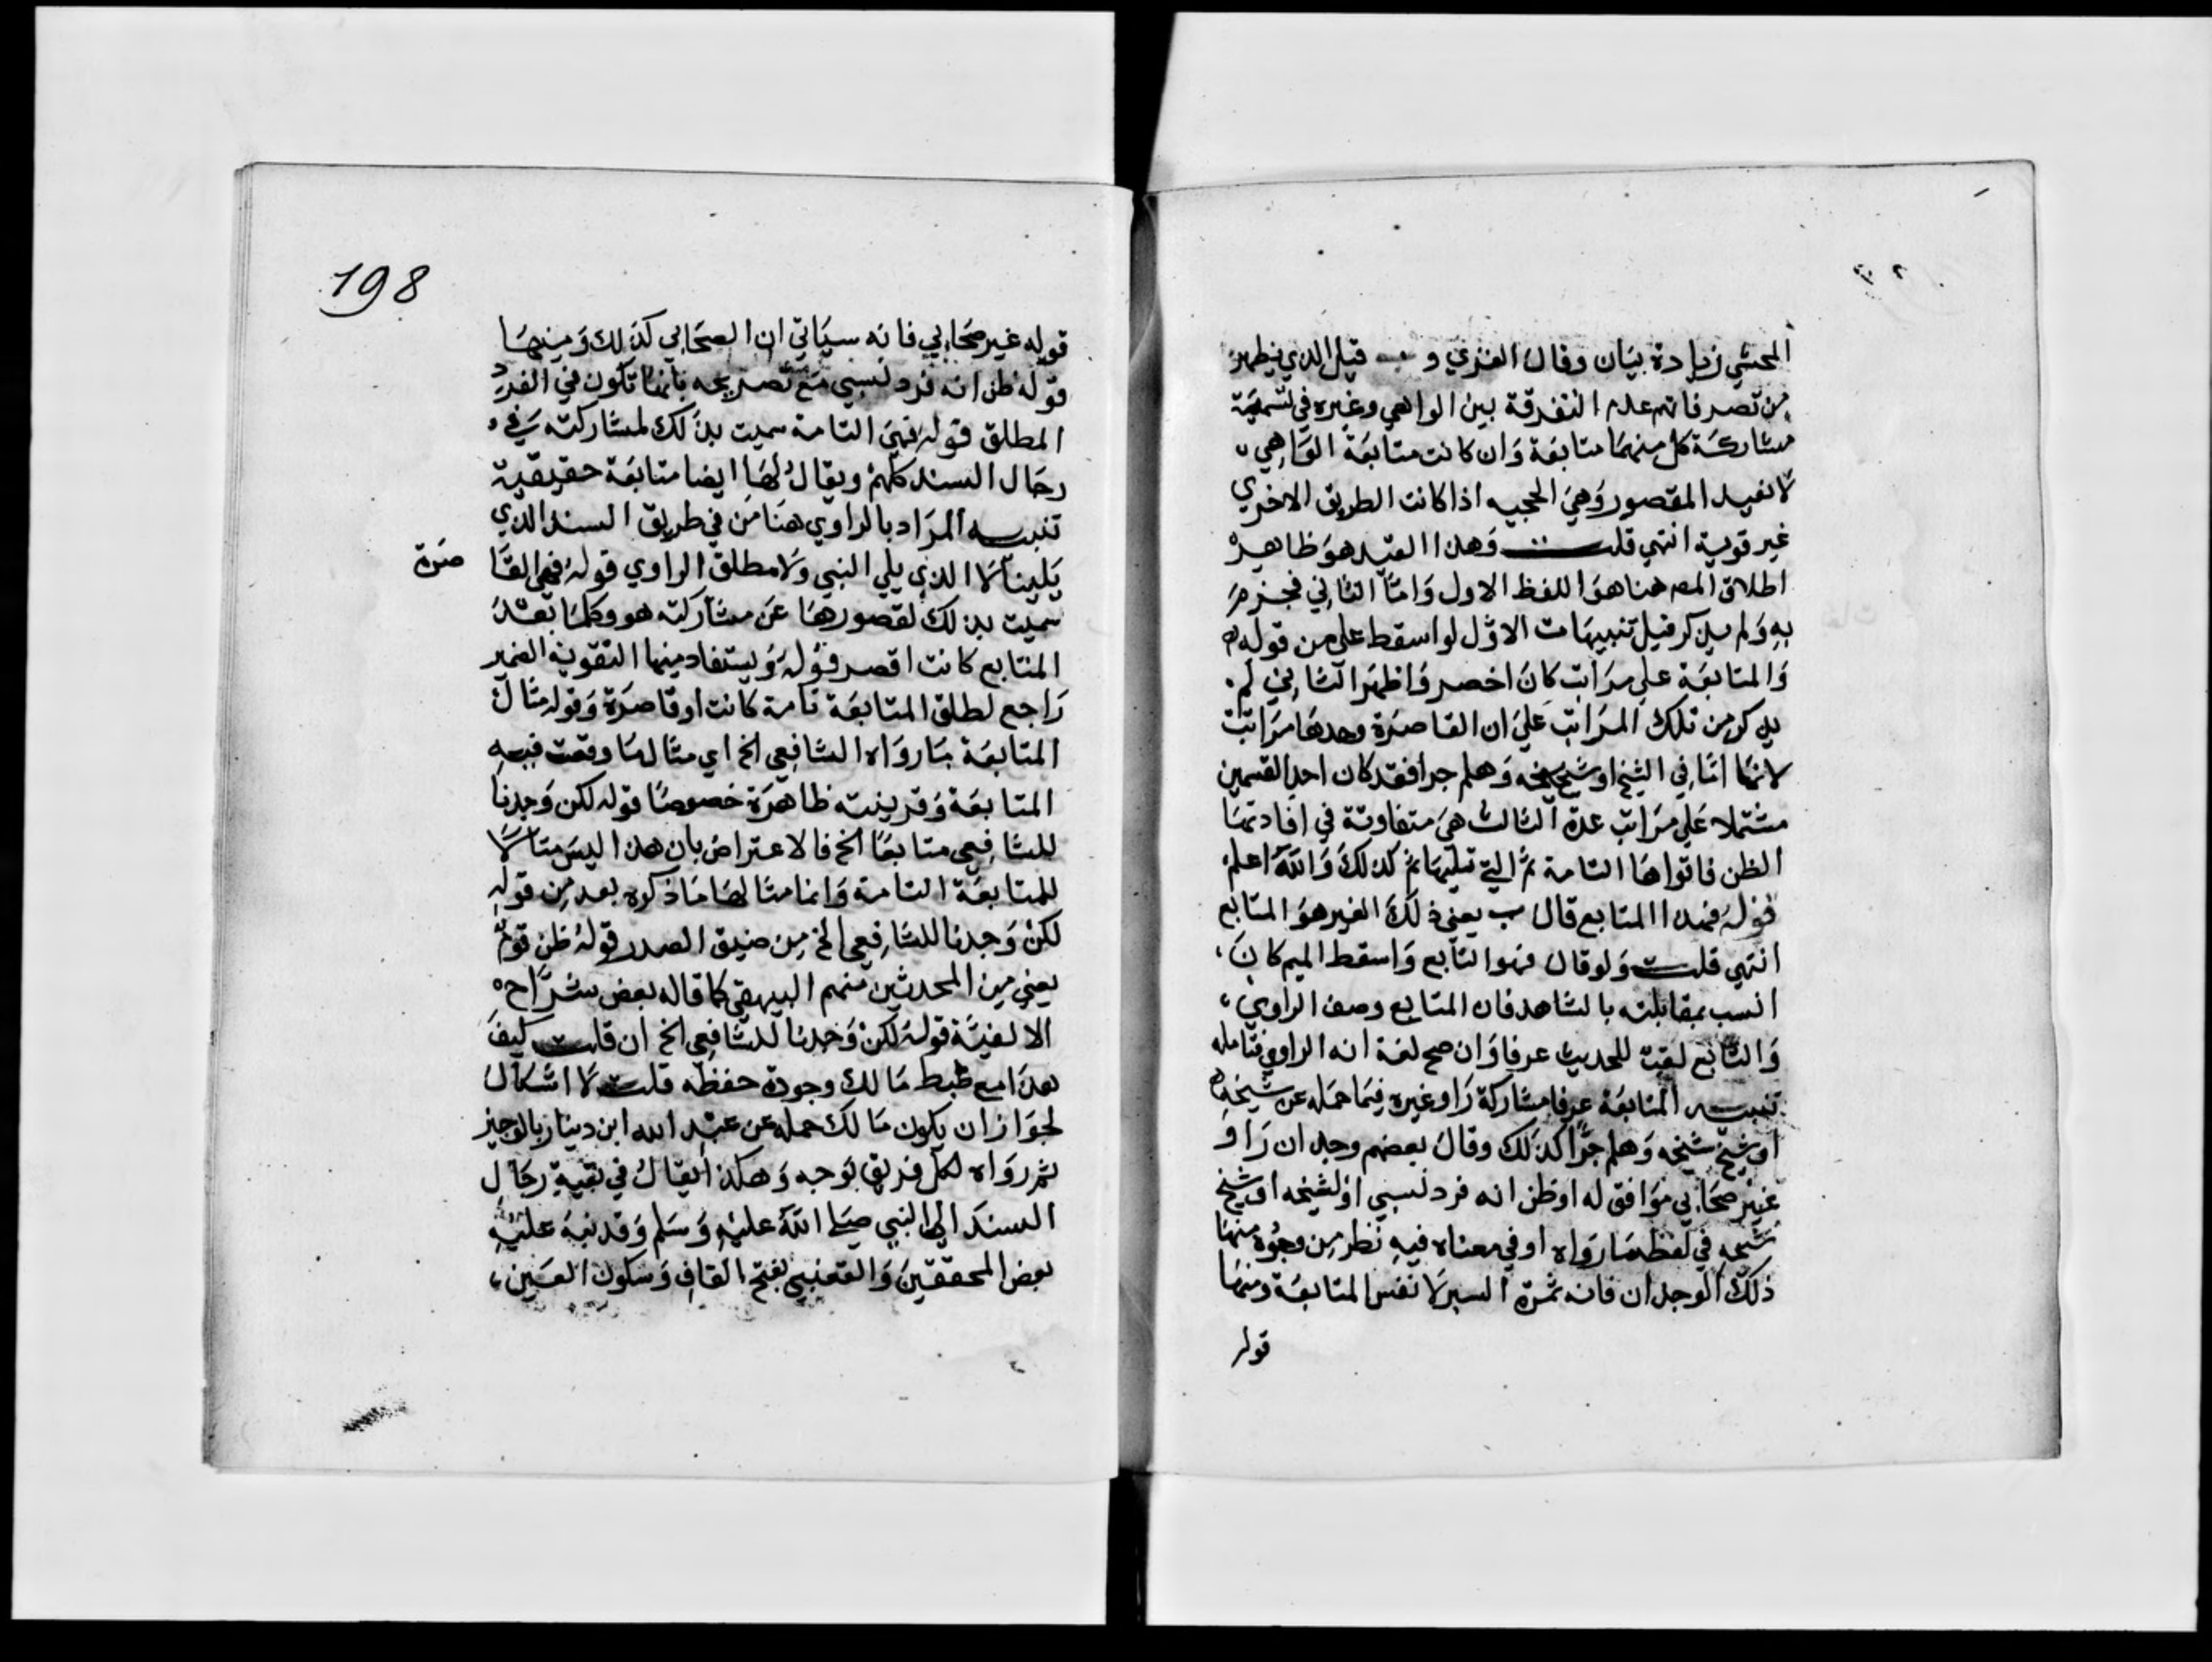 المحشي زيادة بيان وقال الغزي و قيل الذي يظهر
من تصرفاتهم عدم التفرقة بين الواهي وغيره في تسمية
مشاركة كل منهما متابعة وان كانت متابعة الواهي
لا تفيد المقصود وهي الحجيه اذا كانت الطريق الاخري
غير قوية انتهي قلت وهذا القيد هو ظاهر
اطلاق المص هنا هو اللفظ الاول واما الثاني فجزم
به ولم يذكر قيل تنبيهات الاول لو اسقط علي من قوله
والمتابعة علي مراتب كان اخصر واظهر الثاني لم
يذكر من تلك المراتب علي ان القاصرة وحدها مراتب
لانها اما في الشيخ او شيخ شيخه وهلم جرا فقد كان احد القسمين
مشتملا علي مراتب عدة الثالث هي متفاوتة في افادتها
الظن فاقواها التامة ثم التي تليها ثم كذلك والله اعلم
قوله فهذا المتابع قال ب يعني ذلك الغير هو المتابع
انتهي قلت ولو قال فهو التابع واسقط الميم كان
انسب بمقابلته بالشاهد فان المتابع وصف الراوي
والتابع لقب للحديث عرفا وان صح لغة انه الراوي فتامله
تنبيه المتابعة عرفا مشاركة راو غيره فيما حمله عن شيخه
او شيخ شيخه وهلم جرا كذلك وقال بعضهم وجدان راو
غير صحابي موافق له او ظن انه فرد نسبي او لشيخه او شيخ
شيخه في لفظ ما رواه او في معناه فيه نظر من وجوه منها
ذلك الوجدان فانه ثمرة السبر لا نفس المتابعة ومنها
قوله
198
قوله غير صحابي فانه سياتي ان الصحابي كذلك ومنها
قوله ظن انه فرد نسبي مع تصريحه بانها تكون في الفرد
المطلق قوله فهي التامة سميت بذلك لمشاركته في
رجال السند كلهم ويقال لها ايضا متابعة حقيقية
تنبيه المراد بالراوي هنا من في طريق السند الذي
يلينا لا الذي يلي النبي ولا مطلق الراوي قوله فهي القا
صرة
سميت بذلك لقصورها عن مشاركته هو وكلما بعد
المتابع كانت اقصر قوله ويستفاد منها التقوية الضمير
راجع لطلق المتابعة تامة كانت او قاصرة وقوله مثال
المتابعة ما رواه الشافعي الخ اي مثال ما وقعت فيه
المتابعة وقرينته ظاهرة خصوصا قوله لكن وجدنا
للشافعي متابعا الخ فالاعتراض بان هذا ليس مثالا
للمتابعة التامة وانما مثالها ما ذكره بعد من قوله
لكن وجدنا للشافعي الخ من ضيق الصدر قوله ظن قوم
يعني من المحدثين منهم البيهقي كما قاله بعض شراح
الالفية قوله لكن وجدنا للشافعي الخ ان قلت كيف
هذا مع ضبط مالك وجودة حفظه قلت لا اشكال
لجواز ان يكون مالك حمله عن عبد الله ابن دينار بالوجهين
ثم رواه لكل فريق بوجه وهكذا يقال في بقية رجال
السند الي النبي صلي الله عليه وسلم وقد نبه عليه
بعض المحققين والقعنبي بفتح القاف وسكون العين